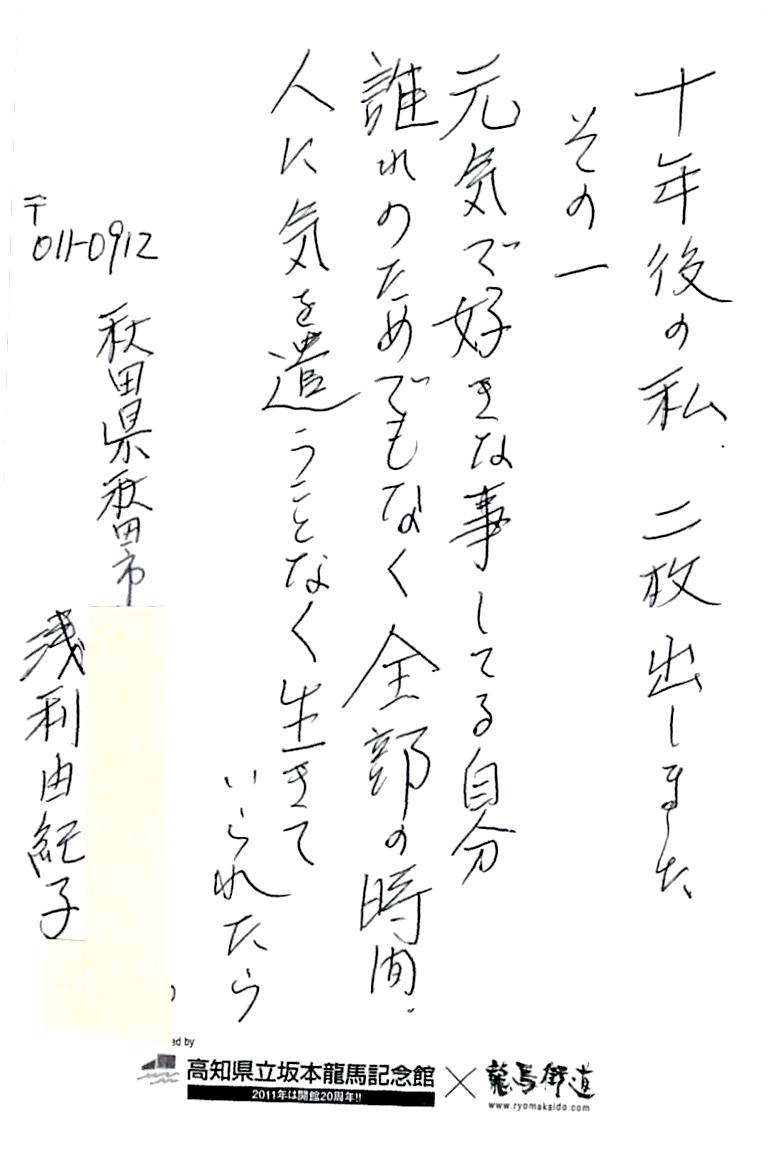 十年後の私. 二枚出しました
その一
元気で好きな事してる自分
誰れのためでもなく全部の時間.
人に気を遣うことなく生きて
いられたら
〒
011-0912
秋田県秋田市
浅利由紀子
ed by
高知県立坂本龍馬記念館 × 龍馬街道
2011年は開館20周年!!
www.ryomakaido.com